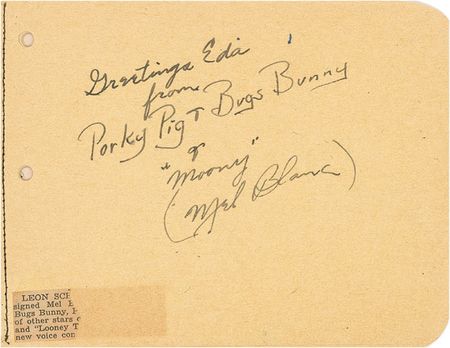 Greetings Eda
from
Porky Pig + Bugs Bunny
or
"Moony"
(Mel Blanc)
LEON SCH
signed Mel B
Bugs Bunny, P
of other stars o
and "Looney T
new voice con